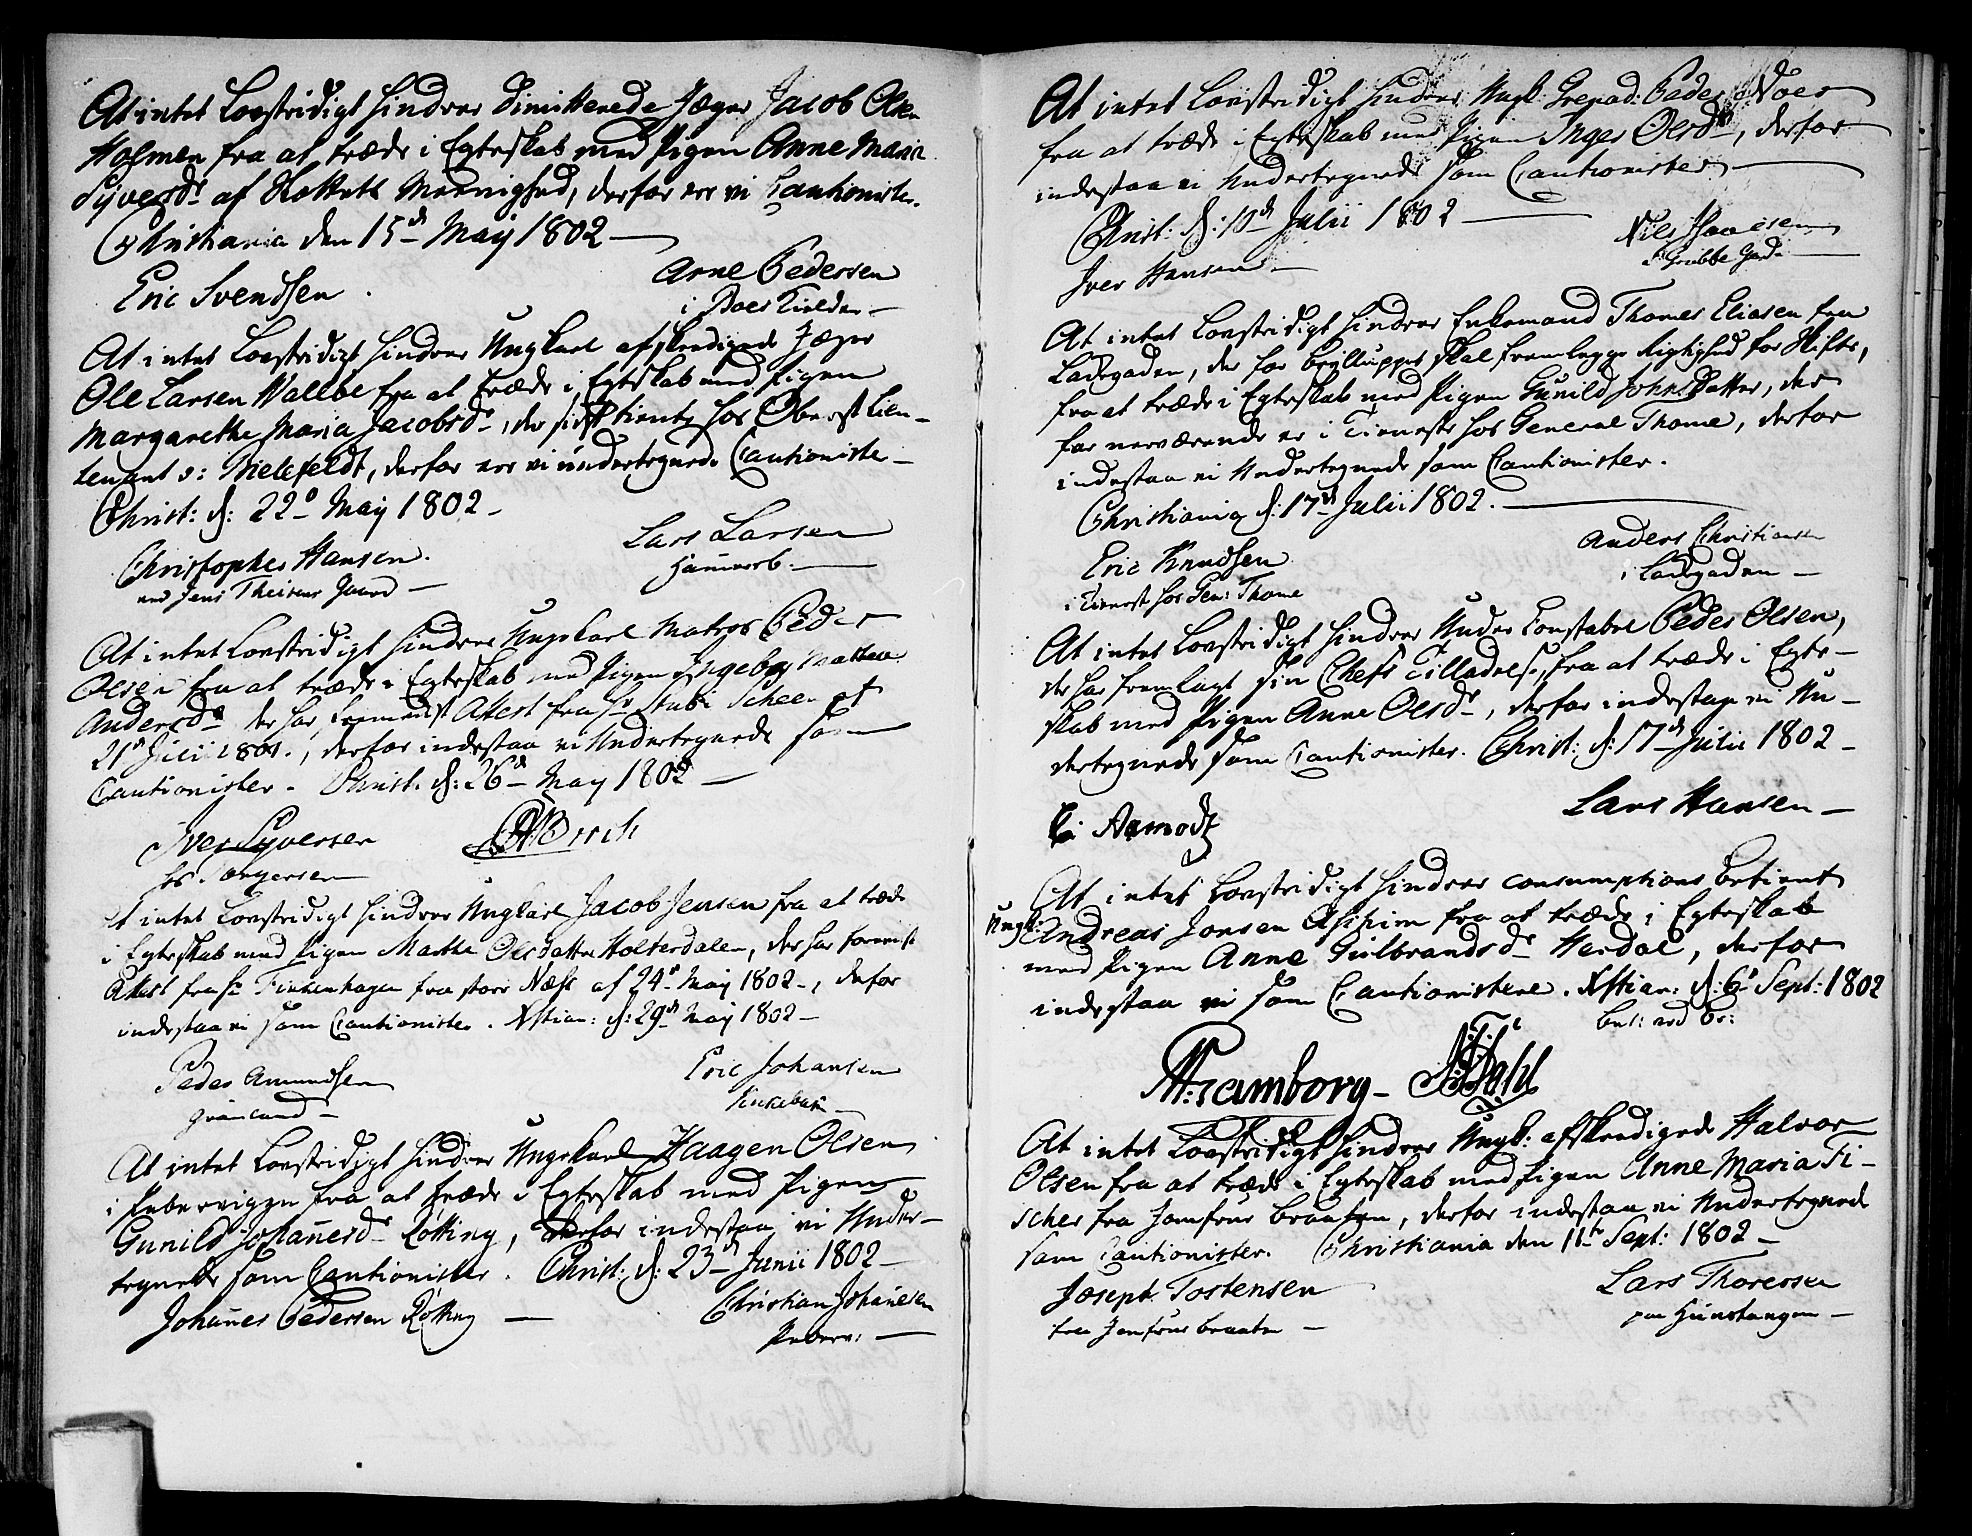 At intet Lovstridigt hindrer dimitterede Jæger Jacob Olsen
Holmen fra at træde i Egteskab med Pigen Anne Maria
Syversdr af Slottets Meenighed, derfor ere vi Cautionister.
Christiania den 15de May 1802
Eric Svendsen. Arne Pedersen
i
At intet Lovstridigt hindrer Ungkarl afskedigede Jæger
Ole Larsen Wallbe fra at træde i Egteskab med Pigen
Margarethe Maria Jacobsdr, der sidst tiente hos Oberst Lieu-
tenant v: Bielefeldt, derfor ere vi undertegnede Cautionister
Christ: d: 22de May 1802
Christopher Hansen. Lars Larsen
ved Jens Theisens Gaard Hammerb.
At intet Lovstridigt hindrer Ungekarl Matros Peder
Olsen fra at træde i Egteskab med Pigen Ingebor Mathea
Andersdr der har forevist Attest fra Hr Stub i Scheen af
21de Julii 1801., derfor indestaa vi Undertegnede som
Cautionister. Christ. d: 26de May 1802
Iver Syversen
hos Torgersen
At intet Lovstridigt hindrer Ungkarl Jacob Jensen fra at træde
i Egteskab med Pigen Marthe Olsdatter Holterdalen, der har forevist
Attest fra Hr Finkenhagen fra store Næss af 24de May 1802, derfor
indestaa vi som Cautionister. Xstian: d: 29de May 1802
Peder Amundsen Eric Johansen
Grønland Enkebak
At intet Lovstridigt hindrer Ungekarl Haagen Olsen
i Pebervigen fra at træde i Egteskab med Pigen
Gunild Johannesdr Røtting, derfor indestaa vi Under-
tegnede som Cautionister. Christ: d: 23de Junii 1802
Johannes Pedersen Røtting Christian Johanesen
Peberv:
At intet Lovstridigt hindrer Ungk: Grenad: Peder
fra at træde i Egteskab med Pigen Inger Olsdr, derfor
indestaa vi Undertegnede som Cautionister
Christ: d: 10de Julii 1802
Iver Hansen Nils
i Grubbe Gad:
At intet Lovstridigt hindrer Enkemand Thomes Eliasen fra
Ladegaden, der før Brylluppet skal fremlegge Rigtighed for Skifte,
fra at træde i Egteskab med Pigen Gunild Johnsdatter, der
for nærværende er i Tieneste hos General Thome, derfor
indestaa vi Undertegnede som Cautionister.
Christiania d: 17de Julii 1802.
Eric Knudsen Anders Christiansen
i Tienest hos Gen: Thome i Ladegaden
At intet Lovstridigt hindrer Under Constabel Peder Olsen,
der har fremlagt sin Chefs Tilladelse, fra at træde i Egte-
skab med Pigen Anne Olsdr, derfor indestaa vi Un-
dertegnede som Cautionister. Christ: d: 17de Julii 1802
Aamodt Lars Hansen
At intet Lovstridigt hindrer Consumptions Betient
Ungk: Andreas Jonsen Askim fra at træde i Egteskab
med Pigen Anne Gulbrandsdr Herdal, derfor
indestaa vi som Cautionistere. Xstian: d: 6te Sept: 1802
Bet: ved Co:
Framborg Dahl
At intet Lovstridigt hindrer Ungk: afskedigede Halvor
Olsen fra at træde i Egteskab med Pigen Anne Maria Fi-
scher fra Jomfrue Braaten, derfor indestaa vi Undertegnede
som Cautionister. Christiania den 11te Sept: 1802
Joseph Tostensen Lars Thoressen
fra Jomfrue Braaten paa